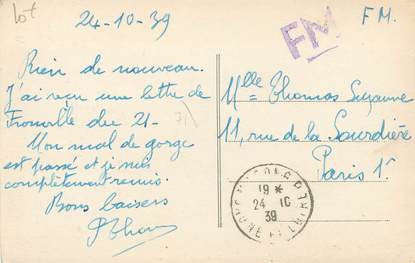 Lot
24-10-39
FM
F M.
Rien de nouveau.
J'ai reçu une lettre de
du 21-
Mon mal de gorge
est passé et je suis
complètement remis.
Bons baisers
Mlle Thomas Suzanne
11, rue de la Sourdière
Paris 1r.
19 *
24 - 10
39